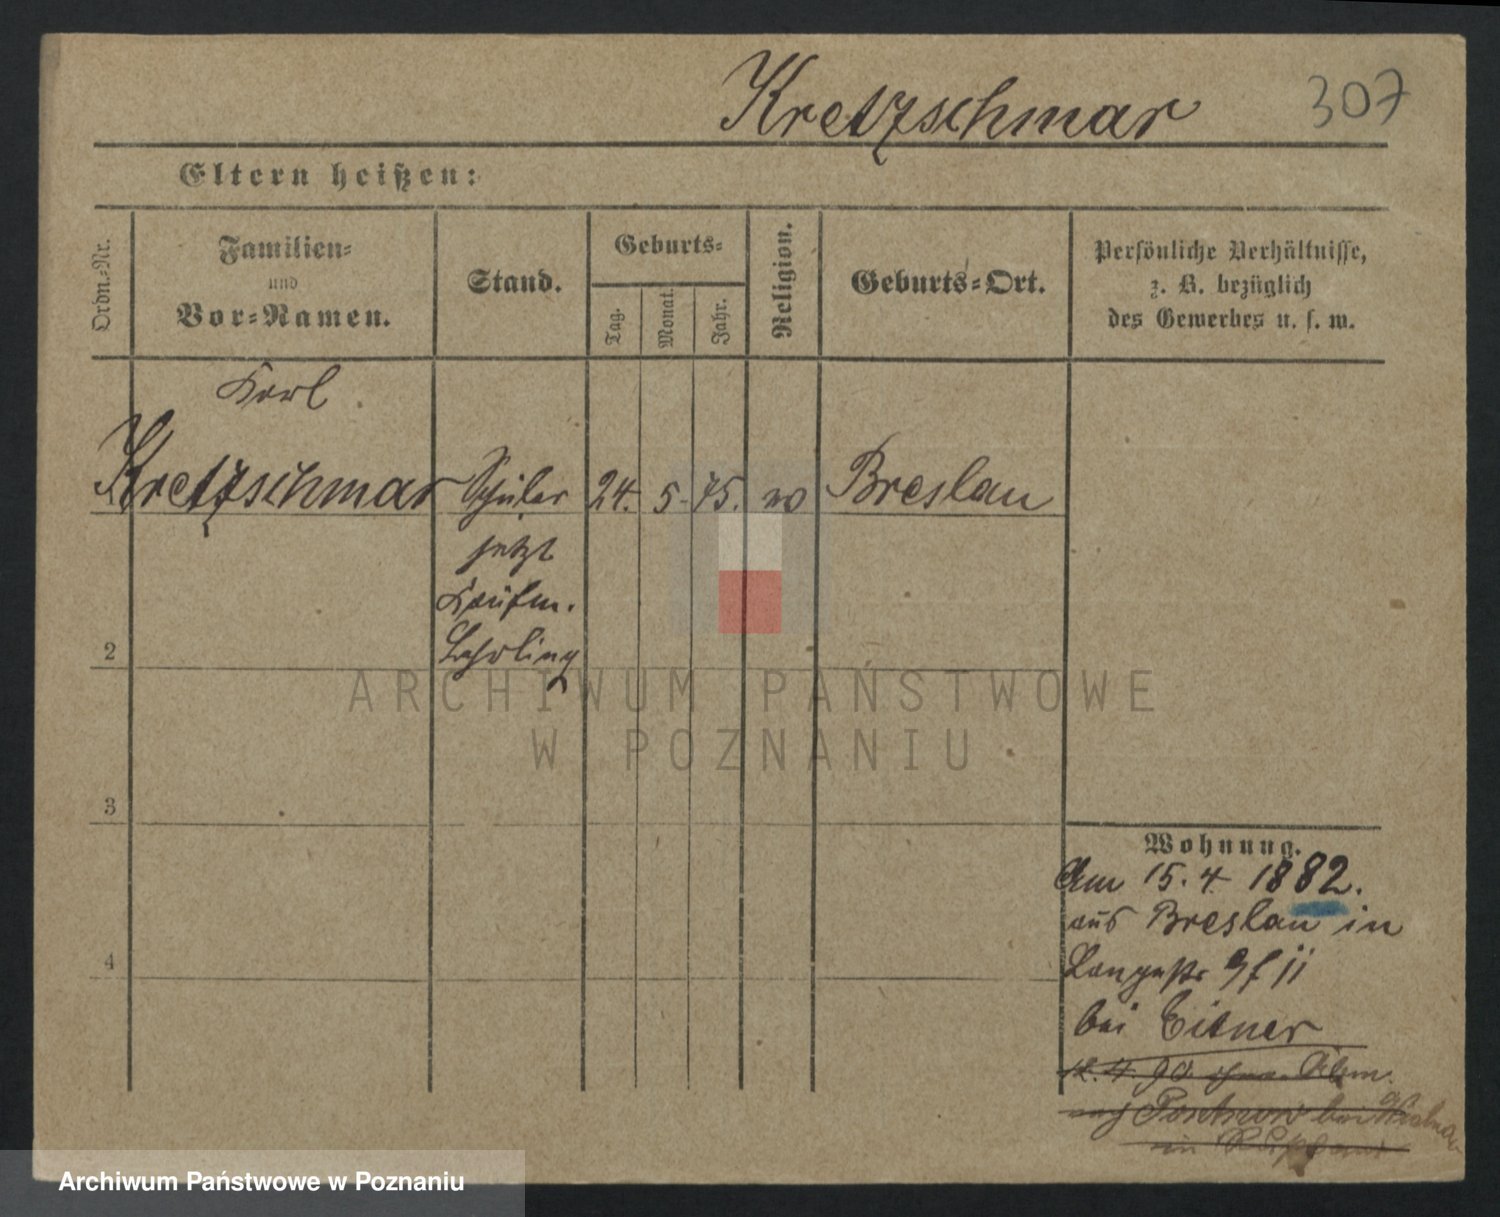 Kretzschmar 307
Eltern heißen:
Ordn.-Nr.
Familien-
und
Vor-Namen.
Stand.
Geburts-
Tag.
Monat.
Jahr.
Religion.
Geburts-Ort.
Persönliche Verhältnisse,
z. B. bezüglich
des Gewerbes u. s. w.
Karl
Kretzschmar Schüler 24. 5. 75. Breslau
jetzt
Kaufm.
Lehrling
2
3
4
Wohnung.
Am 15. 4. 1882.
aus Breslau in
Langestr
bei Eitner
ARCHIWUM PAŃSTWOWE
W POZNANIU
Archiwum Państwowe w Poznaniu